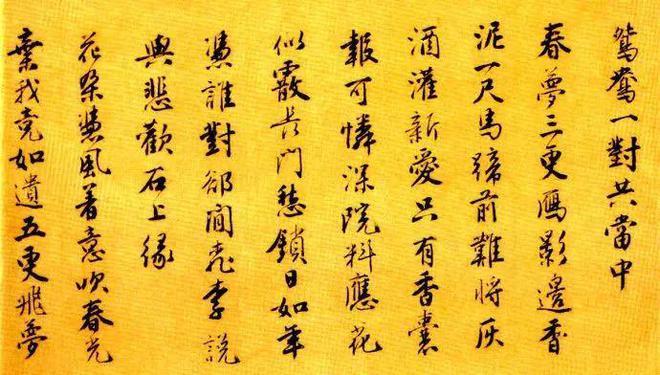 鴛鴦一對共當中
春夢三更雁影邊香
泥一尺馬蹄前難將灰
酒灌新愛只有香囊
報可憐深院料應花
似霰長門愁鎖日如年
憑誰對卻閒花李說
與悲歡石上緣
花朵憑風着意吹春光
棄我竟如遺五更飛夢